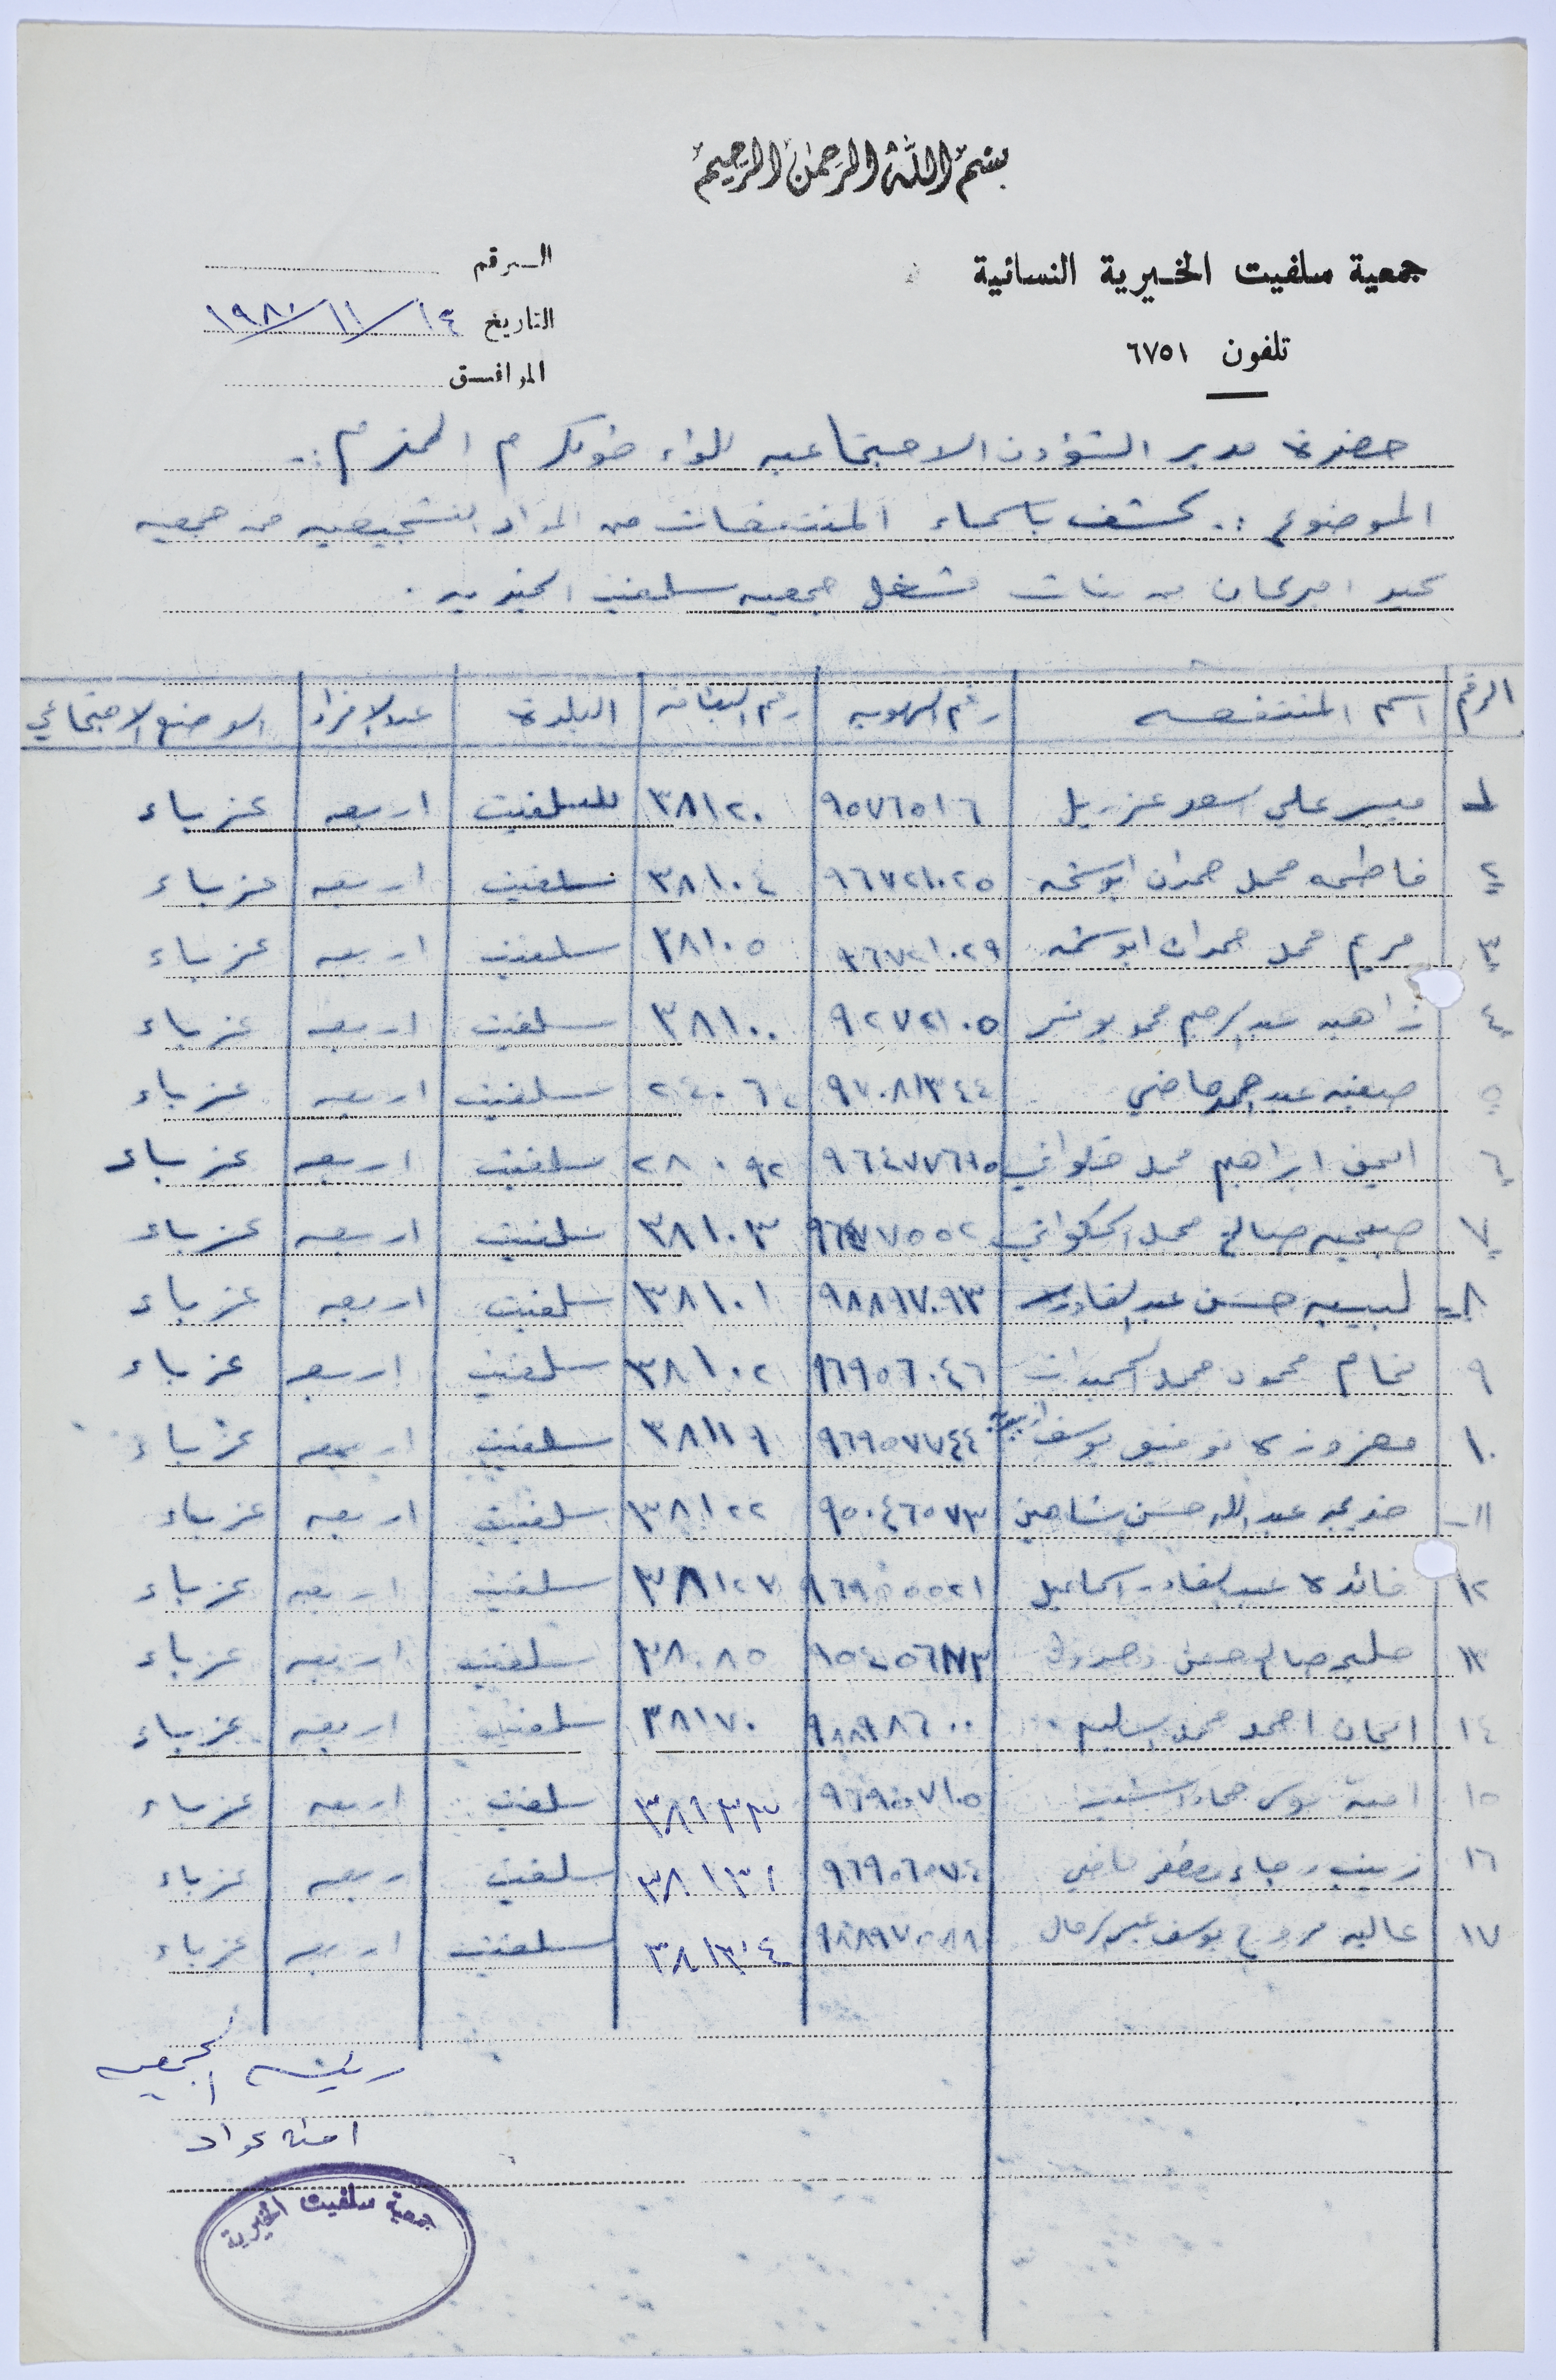 بسم الله الرحمن الرحيم
جمعية سلفيت الخيرية النسائية
تلفون ٦٧٥١
الرقم
التاريخ ١٤/١١/١٩٨٠
الموافق
حضرة مدير الشؤون الاجتماعيه للواء طولكرم المحترم ..
الموضوع :. كشف باسماء المنتفعات من المواد التشجيعيه من جمعيه
كير امريكان من بنات مشغل جمعيه سلفيت الخيريه .
الرقم اسم المنتفعه رقم الهويه رقم البطاقه البلدة عدد الافراد الوضع الاجتماعي
١ ميسر علي اسعد عزريل ٩٥٧٦٥١٦ ٣٨١٢٠ سلفيت اربعه عزباء
٢ فاطمه محمد حمدان ٩٦٧٢١٠٢٥ ٣٨١٠٤ سلفيت اربعه عزباء
٣ مريم محمد حمدان ٩٦٧٢١٠٢٩ ٣٨١٠٥ سلفيت اربعه عزباء
٤ زاهيه ٩٢٧٢١٠٥ ٣٨١٠٠ سلفيت اربعه عزباء
٥ صفيه ماضي ٩٧٠٨١٣٤٤ ٢٤٠٦ سلفيت اربعه عزباء
٦ ابراهيم محمد ٢٨٠٩٢ سلفيت اربعه عزباء
٧ صبحيه صالح محمد ٣٨١٠٣ سلفيت اربعه عزباء
٨ لبيبه حسن عبد القادر ٩٨٨٩٧٠٩٣ ٣٨١٠١ سلفيت اربعه عزباء
٩ ختام محمود محمد ٩٦٩٥٦٠٤٦ ٣٨١٠٢ سلفيت اربعه عزباء
١٠ معزوزه توفيق يوسف ٩٦٩٥٧٧٤٤ ٣٨١١٩ سلفيت اربعه عزباء
١١ خديجه عبد الله حسن شاهين ٩٥٠٤٦٥٧٣ ٣٨١٢٢ سلفيت اربعه عزباء
١٢ فائده عبد القادر اسماعيل ٩٦٩٥٥٥٢١ ٣٨١٢٧ سلفيت اربعه عزباء
١٣ صالح حسن ٣٨٠٨٥ سلفيت اربعه عزباء
١٤ ايمان احمد محمد سليم ٩٨٨٩٨٦٠٠ ٣٨١٧٠ سلفيت اربعه عزباء
١٥ امنة ٣٨١٣٣ سلفيت اربعه عزباء
١٦ زينب رجاء ماضي ٣٨١٣٢ سلفيت اربعه عزباء
١٧ عاليه يوسف ٣٨١٣٤ سلفيت اربعه عزباء
رئيسه الجمعيه
امنه عواد
جمعية سلفيت الخيرية